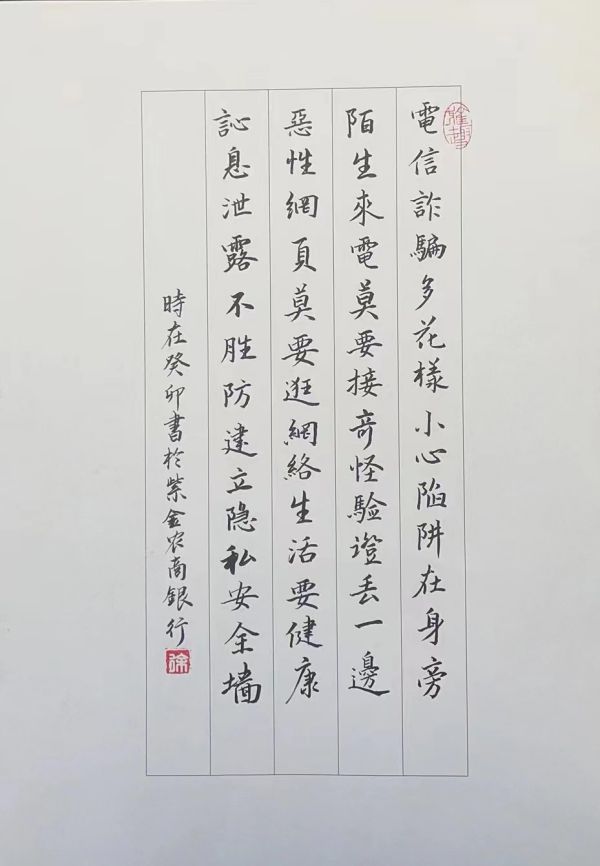 電信詐騙多花樣小心陷阱在身旁
陌生來電莫要接奇怪驗證丟一邊
惡性網頁莫要逛網絡生活要健康
訫息泄露不胜防建立隐私安全墙
時在癸卯書於紫金农商銀行
徐